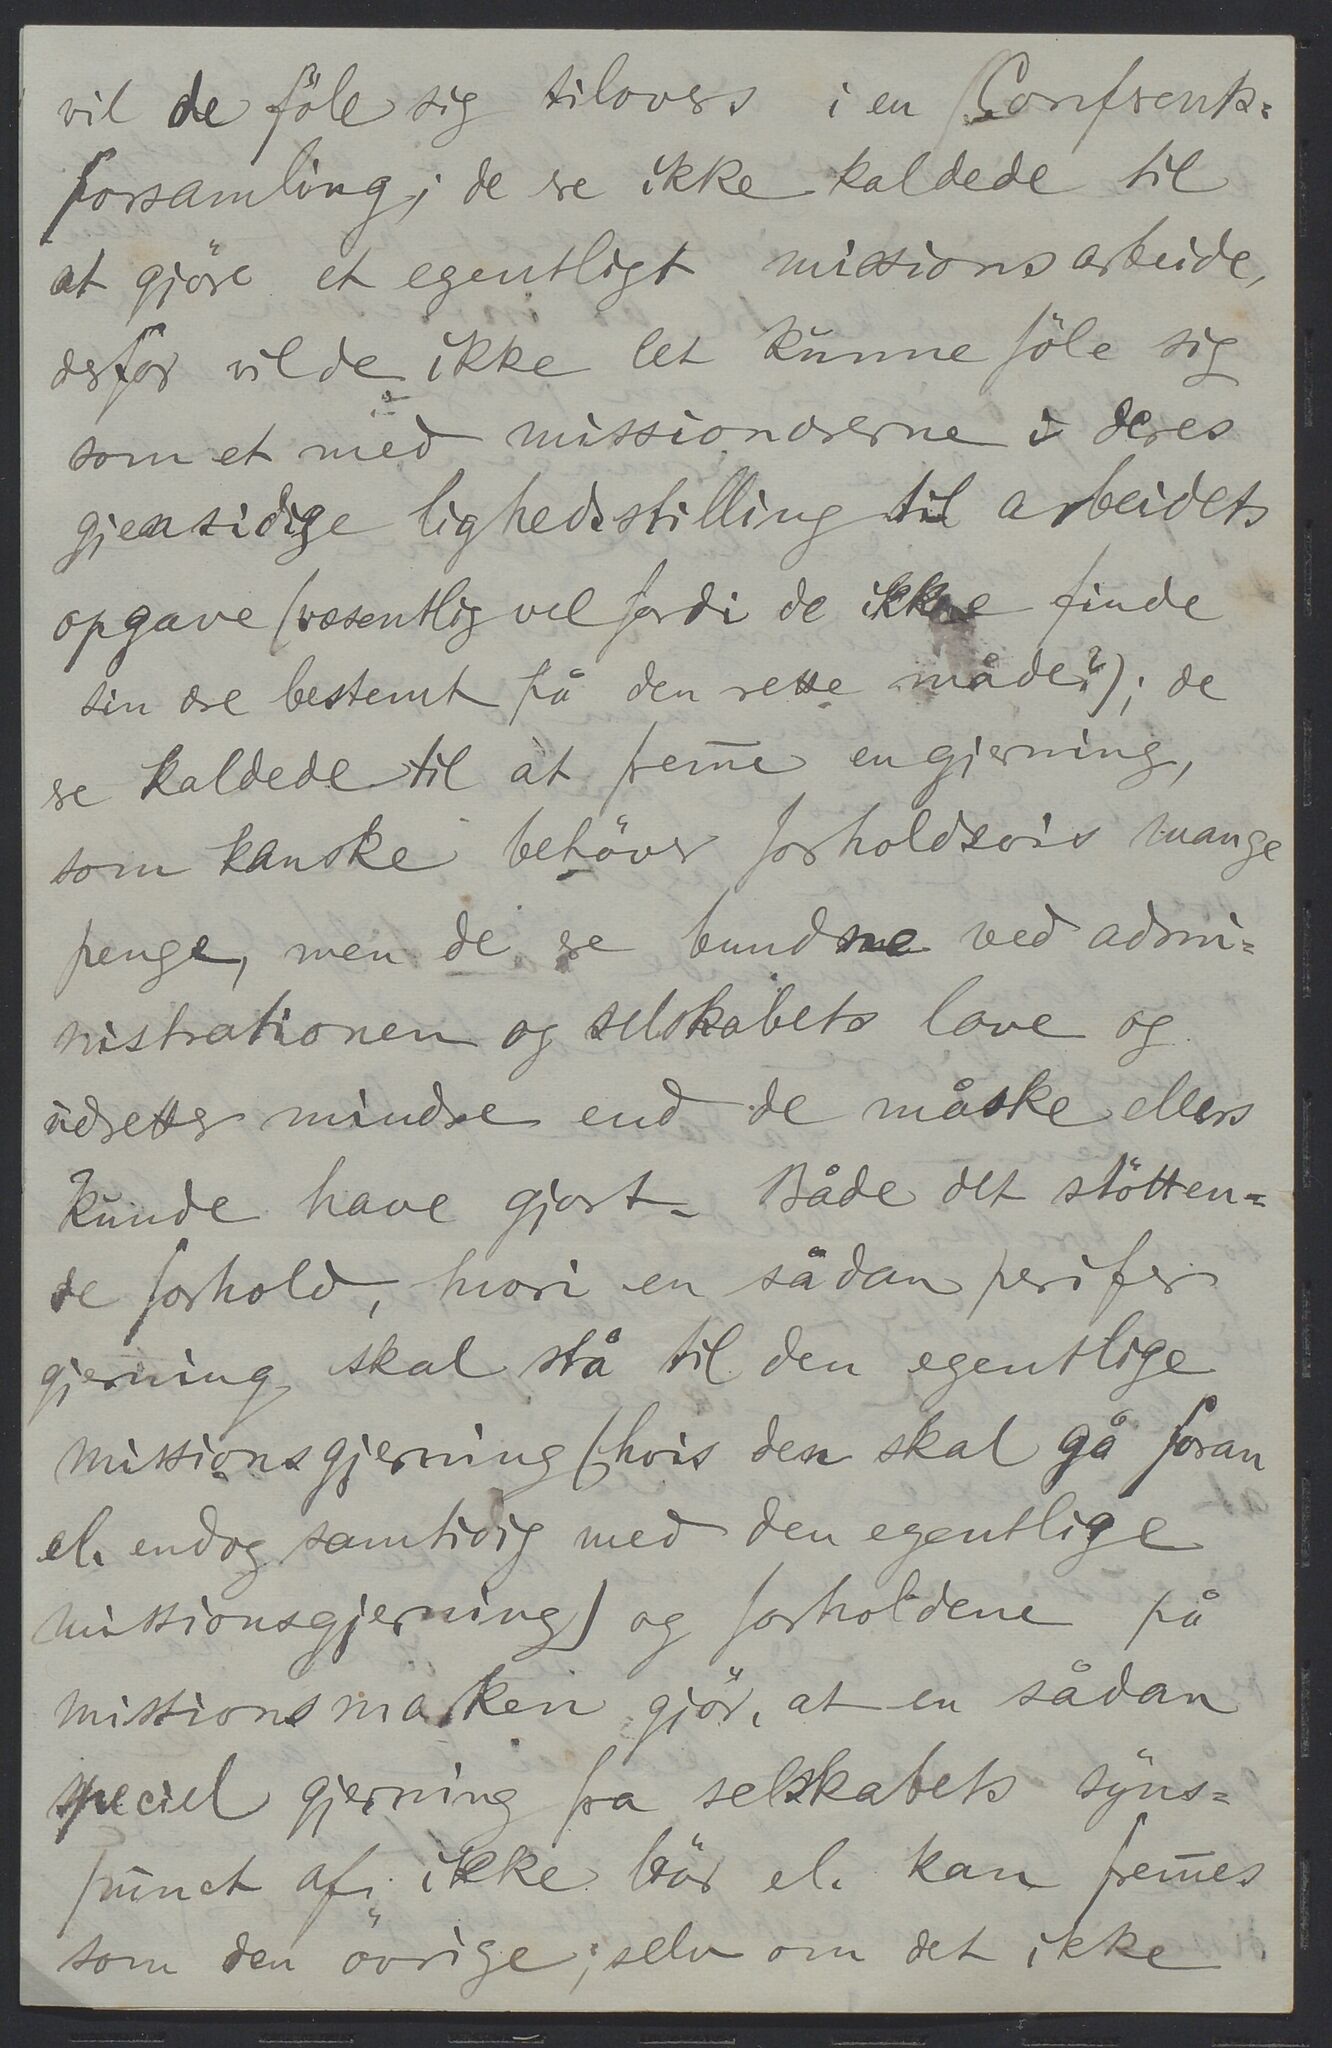 vil de föle sig tilovers i en Confrents-
forsamling; de ere ikke kaldede til
at gjöre et egentligt missionsarbeide,
derfor vil de ikke let kunne föle sig
som et med missionærerne i deres
gjensidige lighedsstilling til arbeidets
opgave (væsentlig vel fordi de ikke finde
sin ære bestemt på den rette måde?); de
ere kaldede til at frem̅e en gjerning,
som kanske behöver forholdsvis mange
penge, men de ere bundne ved admi-
nistrationen og selskabets love og
udretter mindre end de måske ellers
kunde have gjort. Både det stötten-
de forhold, hvori en sådan perifer
gjerning skal stå til den egentlige
missionsgjerning (hvis den skal gå foran
el. endog samtidig med den egentlige
missionsgjerning) og forholdene på
missionsmarken gjör, at en sådan
speciel gjerning fra selskabets syns-
punct af ikke bör el. kan frem̅es
som den övrige; selv om det ikke